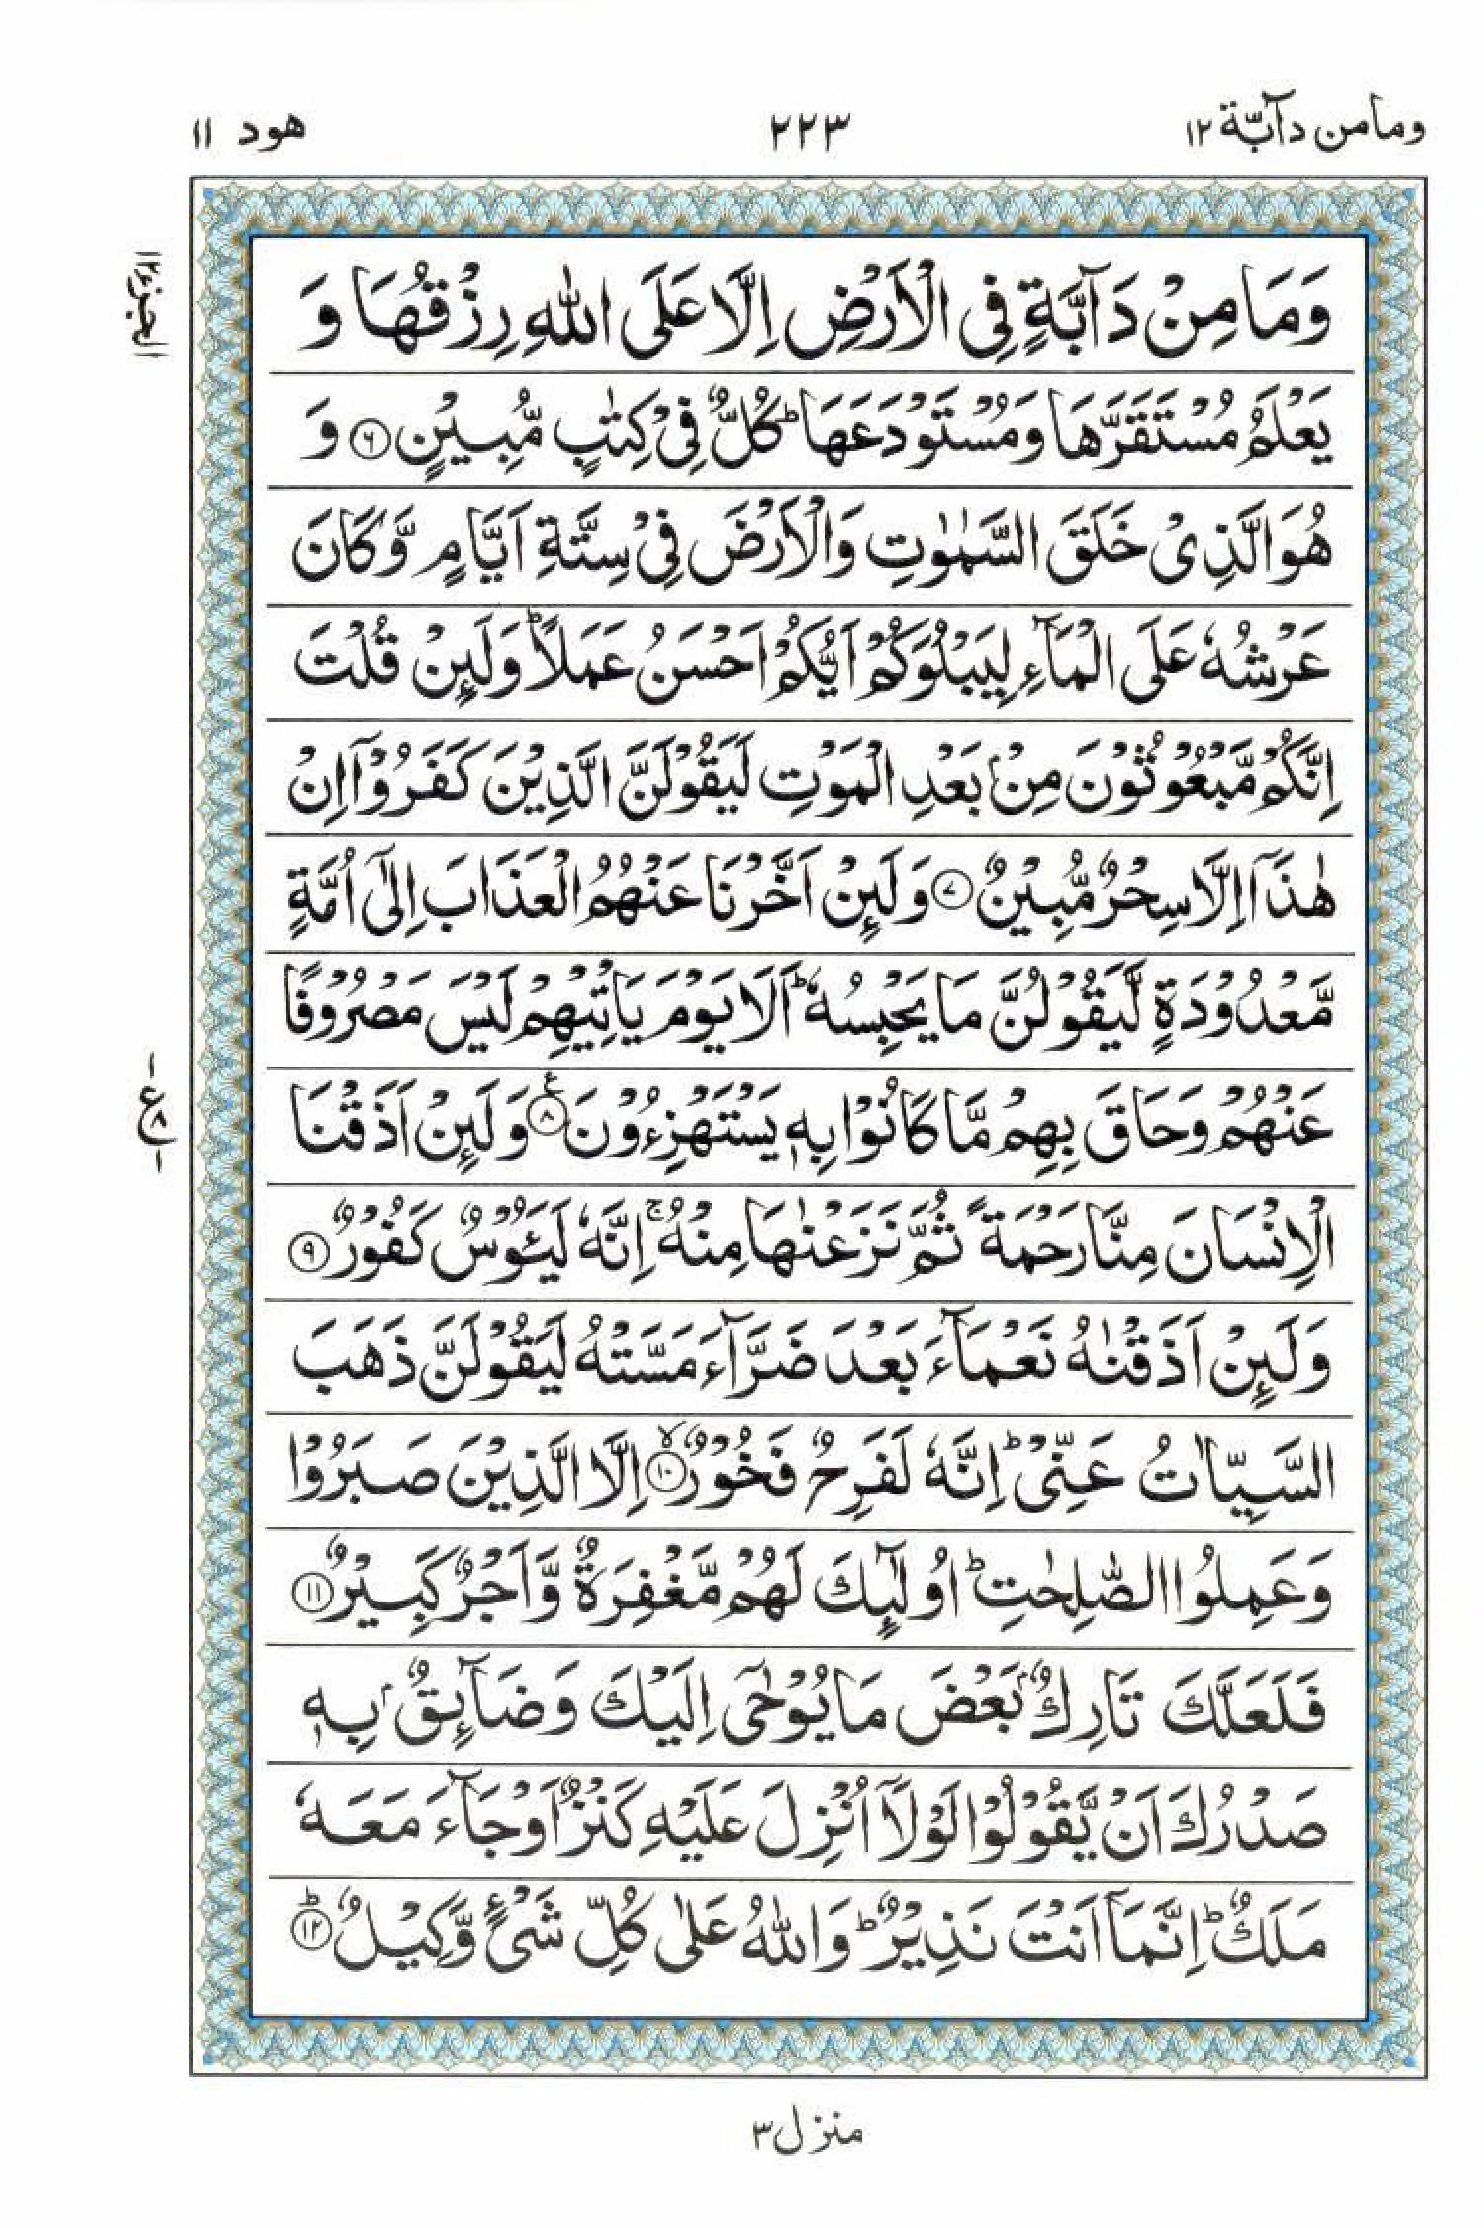 ومامن دآبّة ١٢
٢٢٣
هود ١١
الجزء ١٢
وَمَا مِنْ دَآبَّةٍ فِي الْاَرْضِ اِلَّا عَلَى اللّٰهِ رِزْقُهَا وَ
يَعْلَمُ مُسْتَقَرَّهَا وَمُسْتَوْدَعَهَا ؕ كُلٌّ فِيْ كِتٰبٍ مُّبِيْنٍ ۝۶ وَ
هُوَ الَّذِيْ خَلَقَ السَّمٰوٰتِ وَالْاَرْضَ فِيْ سِتَّةِ اَيَّامٍ وَّكَانَ
عَرْشُهٗ عَلَى الْمَآءِ لِيَبْلُوَكُمْ اَيُّكُمْ اَحْسَنُ عَمَلًا ؕ وَلَىِٕنْ قُلْتَ
اِنَّكُمْ مَّبْعُوْثُوْنَ مِنْۢ بَعْدِ الْمَوْتِ لَيَقُوْلَنَّ الَّذِيْنَ كَفَرُوْۤا اِنْ
هٰذَاۤ اِلَّا سِحْرٌ مُّبِيْنٌ ۝۷ وَلَىِٕنْ اَخَّرْنَا عَنْهُمُ الْعَذَابَ اِلٰۤى اُمَّةٍ
مَّعْدُوْدَةٍ لَّيَقُوْلُنَّ مَا يَحْبِسُهٗ ؕ اَلَا يَوْمَ يَاْتِيْهِمْ لَيْسَ مَصْرُوْفًا
عَنْهُمْ وَحَاقَ بِهِمْ مَّا كَانُوْا بِهٖ يَسْتَهْزِءُوْنَ ۝۸ع وَلَىِٕنْ اَذَقْنَا
-ع٨-
الْاِنْسَانَ مِنَّا رَحْمَةً ثُمَّ نَزَعْنٰهَا مِنْهُ ۚ اِنَّهٗ لَيَـُٔوْسٌ كَفُوْرٌ ۝۹
وَلَىِٕنْ اَذَقْنٰهُ نَعْمَآءَ بَعْدَ ضَرَّآءَ مَسَّتْهُ لَيَقُوْلَنَّ ذَهَبَ
السَّيِّاٰتُ عَنِّيْ ؕ اِنَّهٗ لَفَرِحٌ فَخُوْرٌ ۝۱۰ۙ اِلَّا الَّذِيْنَ صَبَرُوْا
وَعَمِلُوا الصّٰلِحٰتِ ؕ اُولٰٓىِٕكَ لَهُمْ مَّغْفِرَةٌ وَّاَجْرٌ كَبِيْرٌ ۝۱۱
فَلَعَلَّكَ تَارِكٌۢ بَعْضَ مَا يُوْحٰۤى اِلَيْكَ وَضَآىِٕقٌۢ بِهٖ
صَدْرُكَ اَنْ يَّقُوْلُوْا لَوْلَاۤ اُنْزِلَ عَلَيْهِ كَنْزٌ اَوْ جَآءَ مَعَهٗ
مَلَكٌ ؕ اِنَّمَاۤ اَنْتَ نَذِيْرٌ ؕ وَاللّٰهُ عَلٰى كُلِّ شَيْءٍ وَّكِيْلٌ ۝۱۲ؕ
منزل ٣